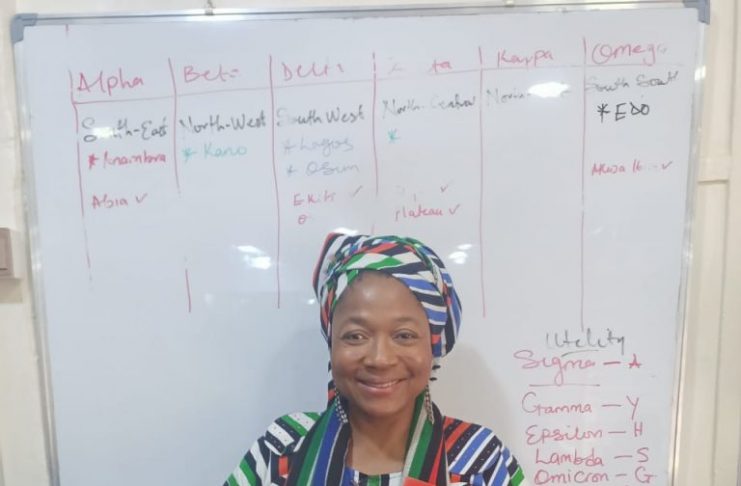 Alpha
Delta
Kappa
Omega
South-East
North-West
South West
North-Central
South South
* Anambra
* Kano
* Lagos
* EDO
* Osun
*
Abia ✓
Ekiti ✓
✓
Plateau ✓
Utility
Sigma - A
Gamma - Y
Epsilon - H
Lambda - S
Omicron - G